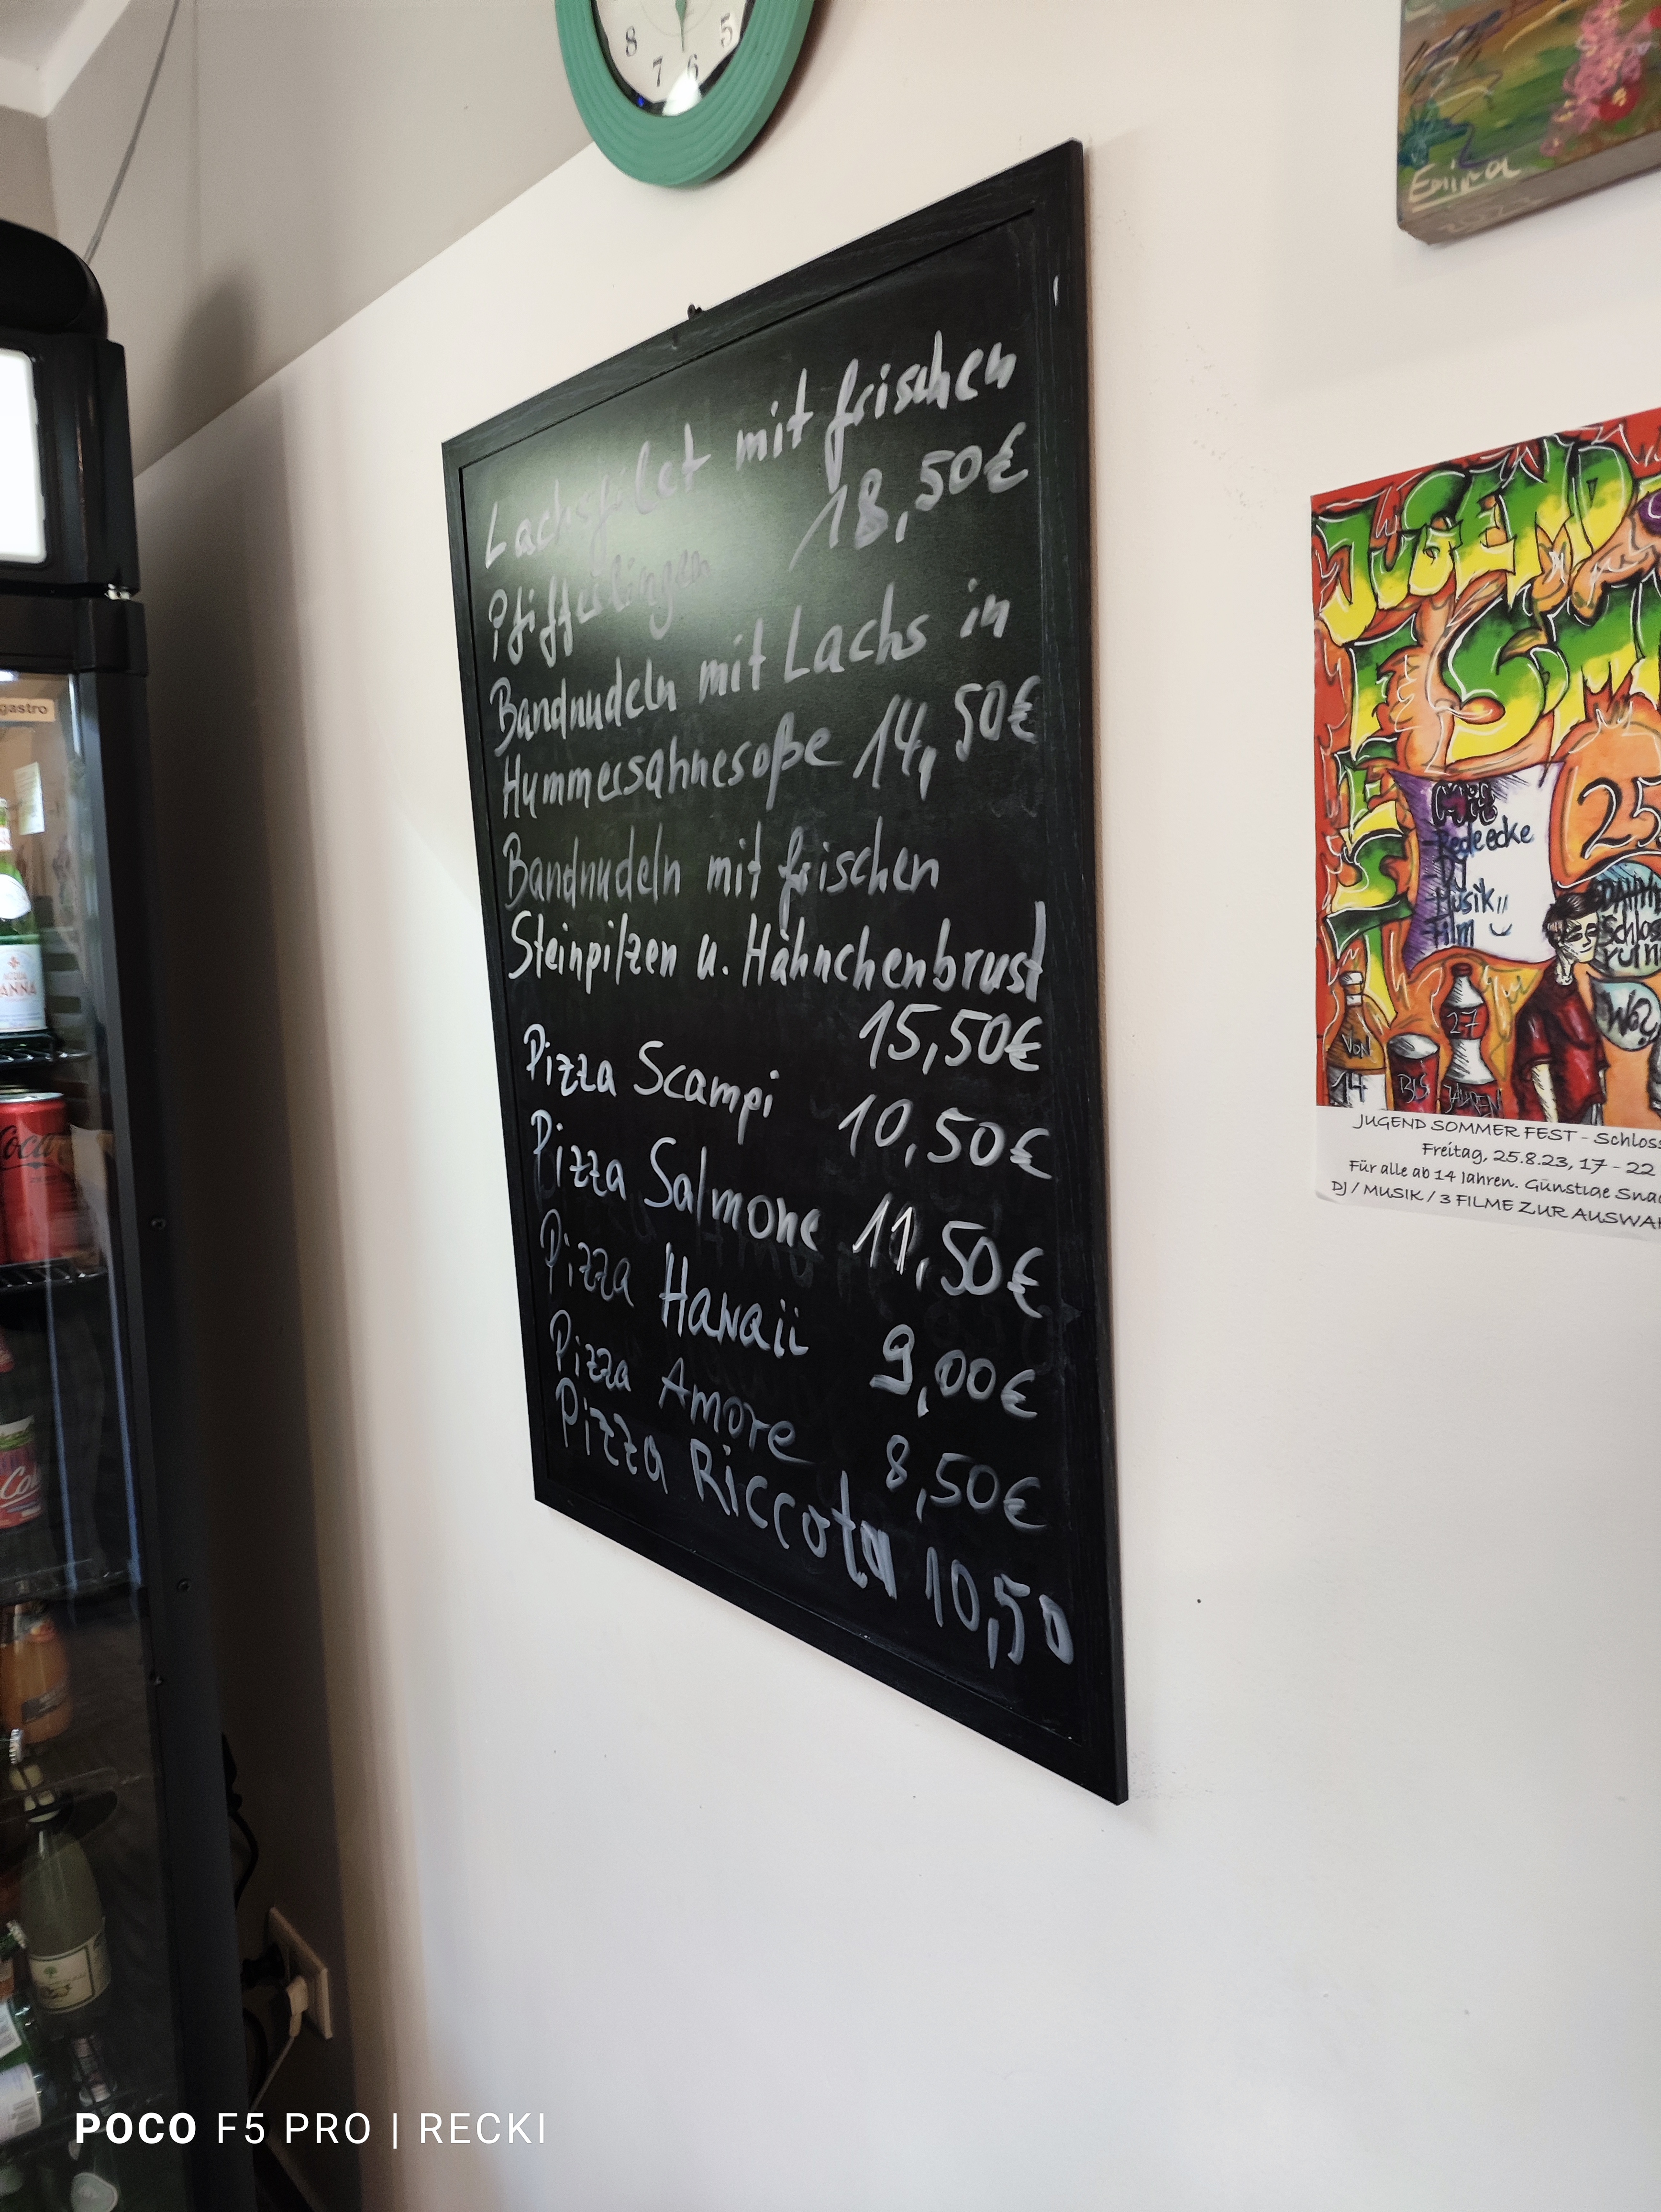 8 7 6 5
Emina
Lachsfilet mit frischen
Pfifferlingen 18,50€
Bandnudeln mit Lachs in
Hummersahnesoße 14,50€
Bandnudeln mit frischen
Steinpilzen u. Hähnchenbrust
15,50€
Pizza Scampi 10,50€
Pizza Salmone 11,50€
Pizza Hawaii 9,00€
Pizza Amore 8,50€
Pizza Riccota 10,50
JUGEND
25
Redeecke
DJ
Musik
Film
WO?
VON
14
BIS
27
JAHREN
JUGEND SOMMER FEST - Schloss
Freitag, 25.8.23, 17 - 22
Für alle ab 14 Jahren. Günstige Sna
DJ / MUSIK / 3 FILME ZUR AUSWAH
gastro
ANNA
Coca
POCO F5 PRO | RECKI